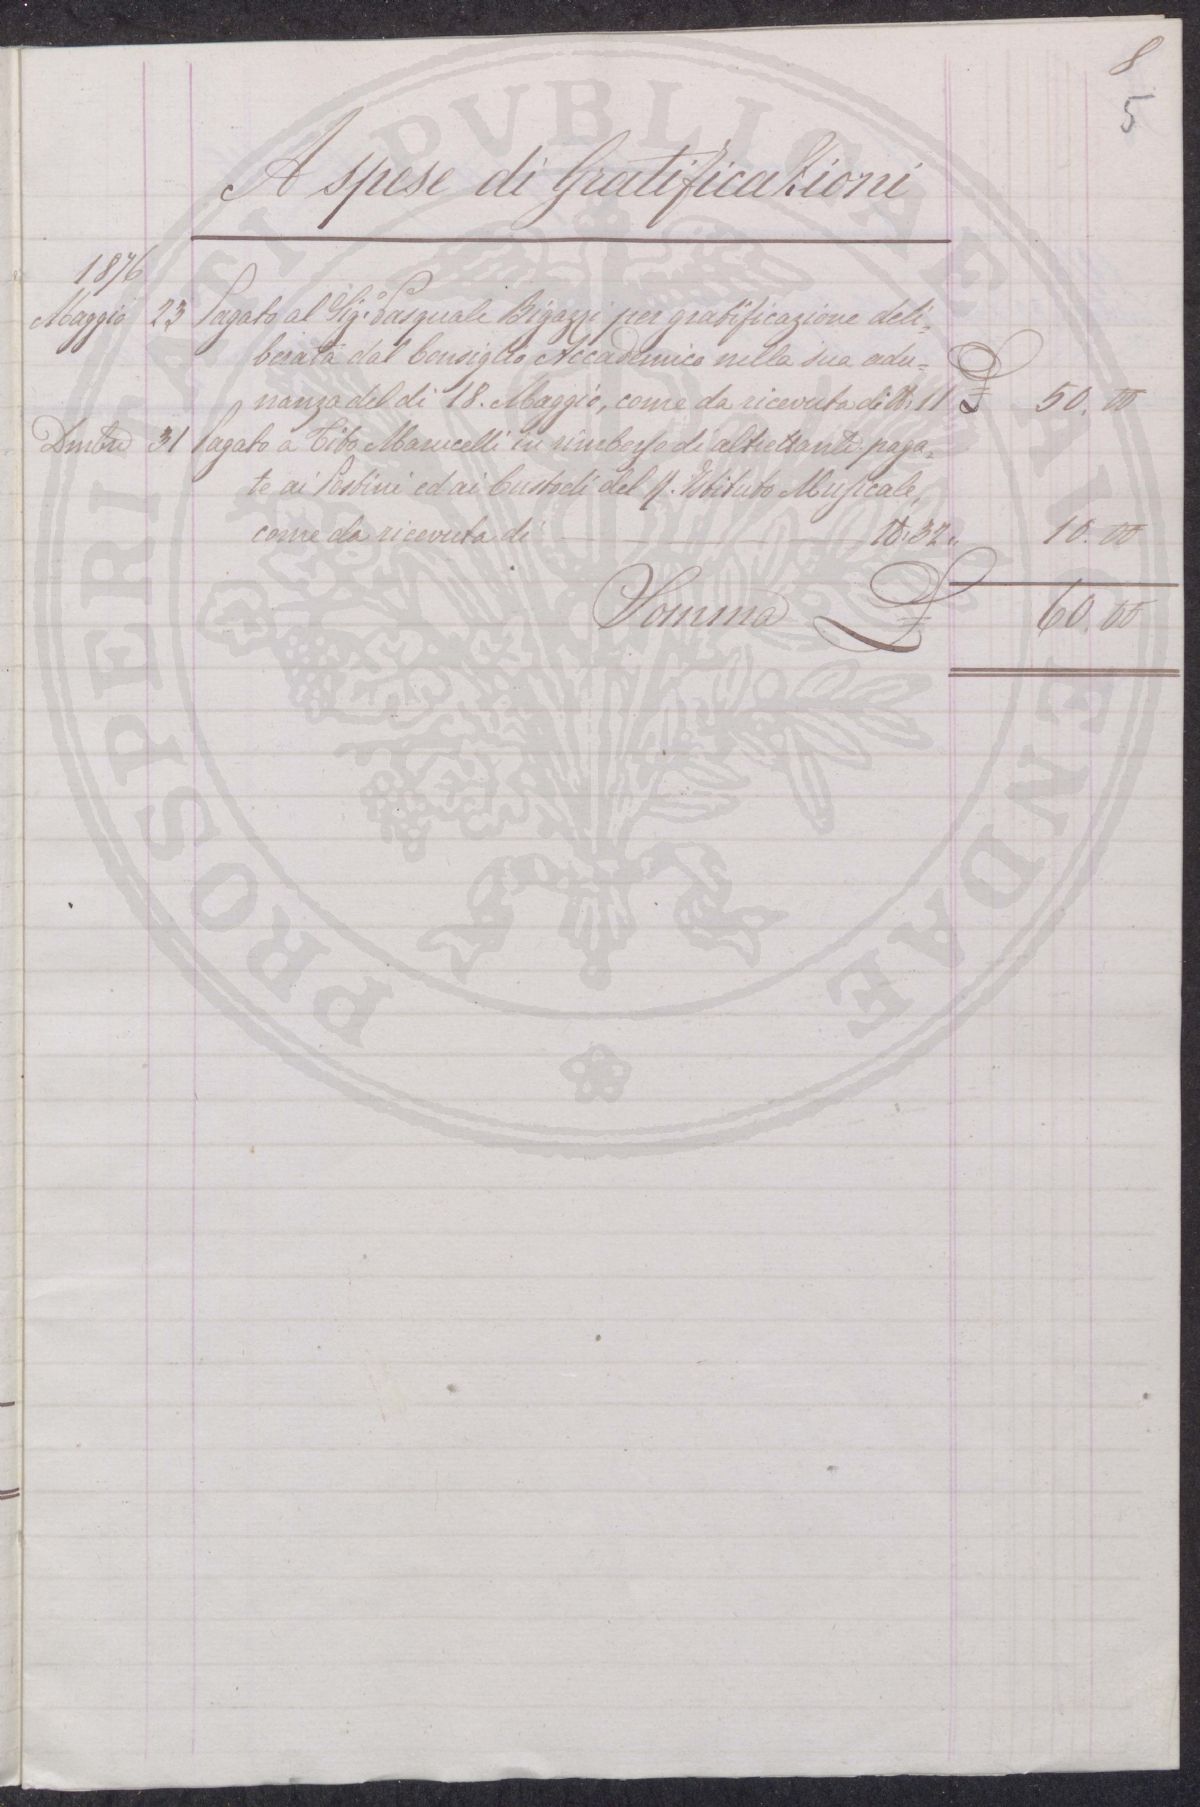 8
5
A spese di Gratificazioni
1876
Maggio 23 Pagato al Sig.r Pasquale Bigazzi per gratificazione deli=
berata dal Consiglio Accademico nella sua adu=
nanza del di 18. Maggio, come da ricevuta di N.° 11 £ 50. 00
Dmbre 31 Pagato a Tito Marucelli in rimborso di altrettante paga=
te ai Postini ed ai Custodi del R. Istituto Musicale,
come da ricevuta di N.° 32 " 10. 00
Somma £ 60. 00
PROSPERITATI PVBLICAE AVGENDAE